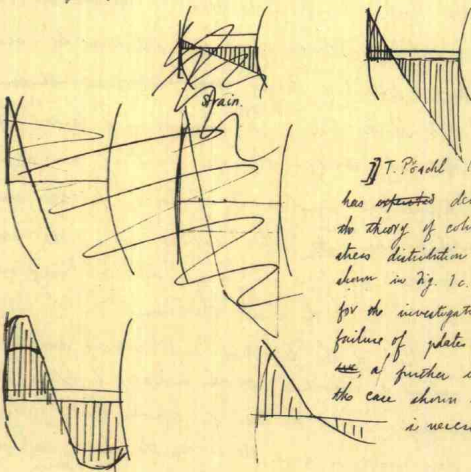 Strain.
T. Pöschl
has de
the theory of
stress distribution
shown in Fig. 1c.
for the investigat
failure of plates
a further
the case shown
is neces